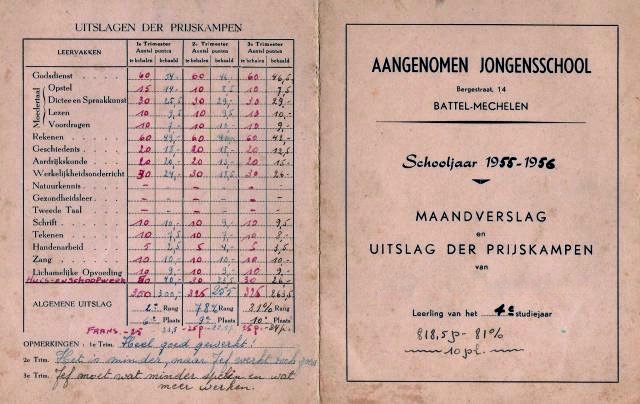 UITSLAGEN DER PRIJSKAMPEN
LEERVAKKEN
1e Trimester Aantal punten te behalen behaald
2e Trimester Aantal punten te behalen behaald
3e Trimester Aantal punten te behalen behaald
Godsdienst 60 60 60 46,5
Moedertaal
Opstel 15 14,- 10 8,5 10 7,5
Dictee en Spraakkunst 30 25,5 30 29,- 30 29,-
Lezen 10 9,5 10 9,- 10 10,-
Voordragen 10 10 10 9,-
Rekenen 60 60 60 42,-
Geschiedenis 20 20 20
Aardrijkskunde 20 20,- 20 20 15,-
Werkelijkheidsonderricht 30 30 30 26,-
Natuurkennis - - -
Gezondheidsleer - - -
Tweede Taal - - -
Schrift 10 10,- 10 9,- 10 9,5
Tekenen 10 10 10
Handenarbeid 5 2,5 5 4,- 5 3,5
Zang 10 10,- 10 10,- 10 9,-
Lichamelijke Opvoeding 10 9,- 10 9,- 10 9,-
HUIS- EN SCHOOLWERK 40,- 30 26,-
350 300,- 325 255 325 263,5
ALGEMENE UITSLAG
2e Rang 78% Rang 81% Rang
6e Plaats 9e Plaats 10e Plaats
FRANS. -25 -25p 25p
OPMERKINGEN : 1e Trim. Heel goed gewerkt!
2e Trim. Het is minder, maar Jef werkt toch goed
3e Trim. Jef moet wat minder spelen en wat
meer werken.
AANGENOMEN JONGENSSCHOOL
Bergestraat, 14
BATTEL-MECHELEN
Schooljaar 1955-1956
MAANDVERSLAG
en
UITSLAG DER PRIJSKAMPEN
van
Leerling van het 4e studiejaar
818,5p - 81%
10 pl.